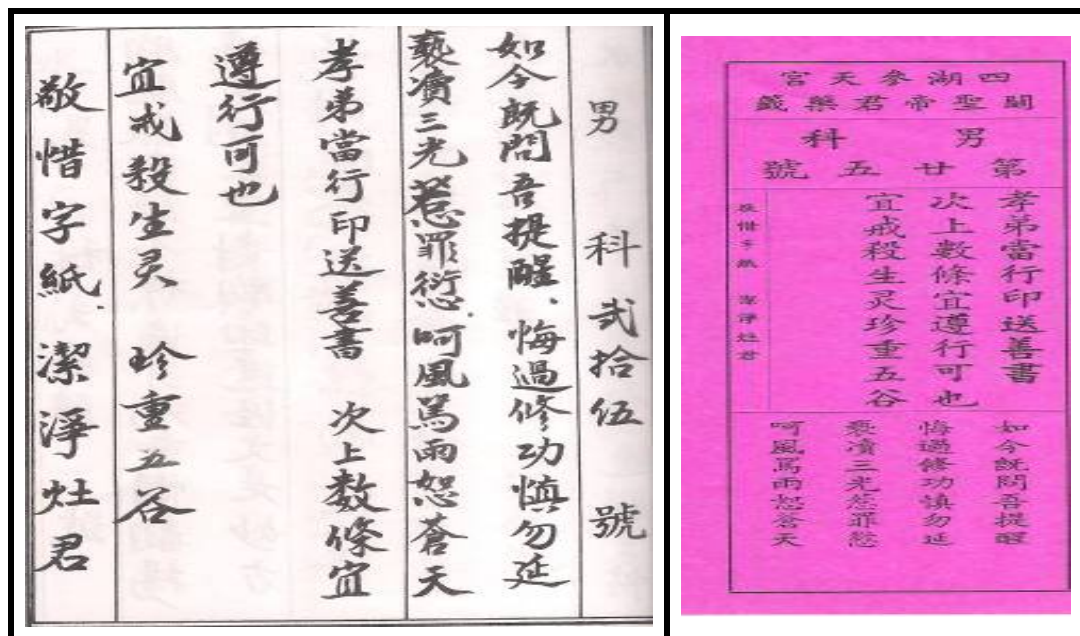 男 科 弍拾伍 號
如今既問吾提醒、悔過修功慎勿延
褻瀆三光惹罪愆.呵風罵雨怨蒼天
孝弟當行印送善書 次上数條宜
遵行可也
宜戒殺生灵 珍重五谷
敬惜字紙.潔淨灶君
四湖參天宮
關聖帝君藥籤
男 科
第廿五號
孝弟當行印送善書
次上數條宜遵行可也
宜戒殺生灵珍重五谷
敬惜字紙 潔淨灶君
如今既問吾提醒
悔過修功慎勿延
褻瀆三光惹罪愆
呵風罵雨怨蒼天